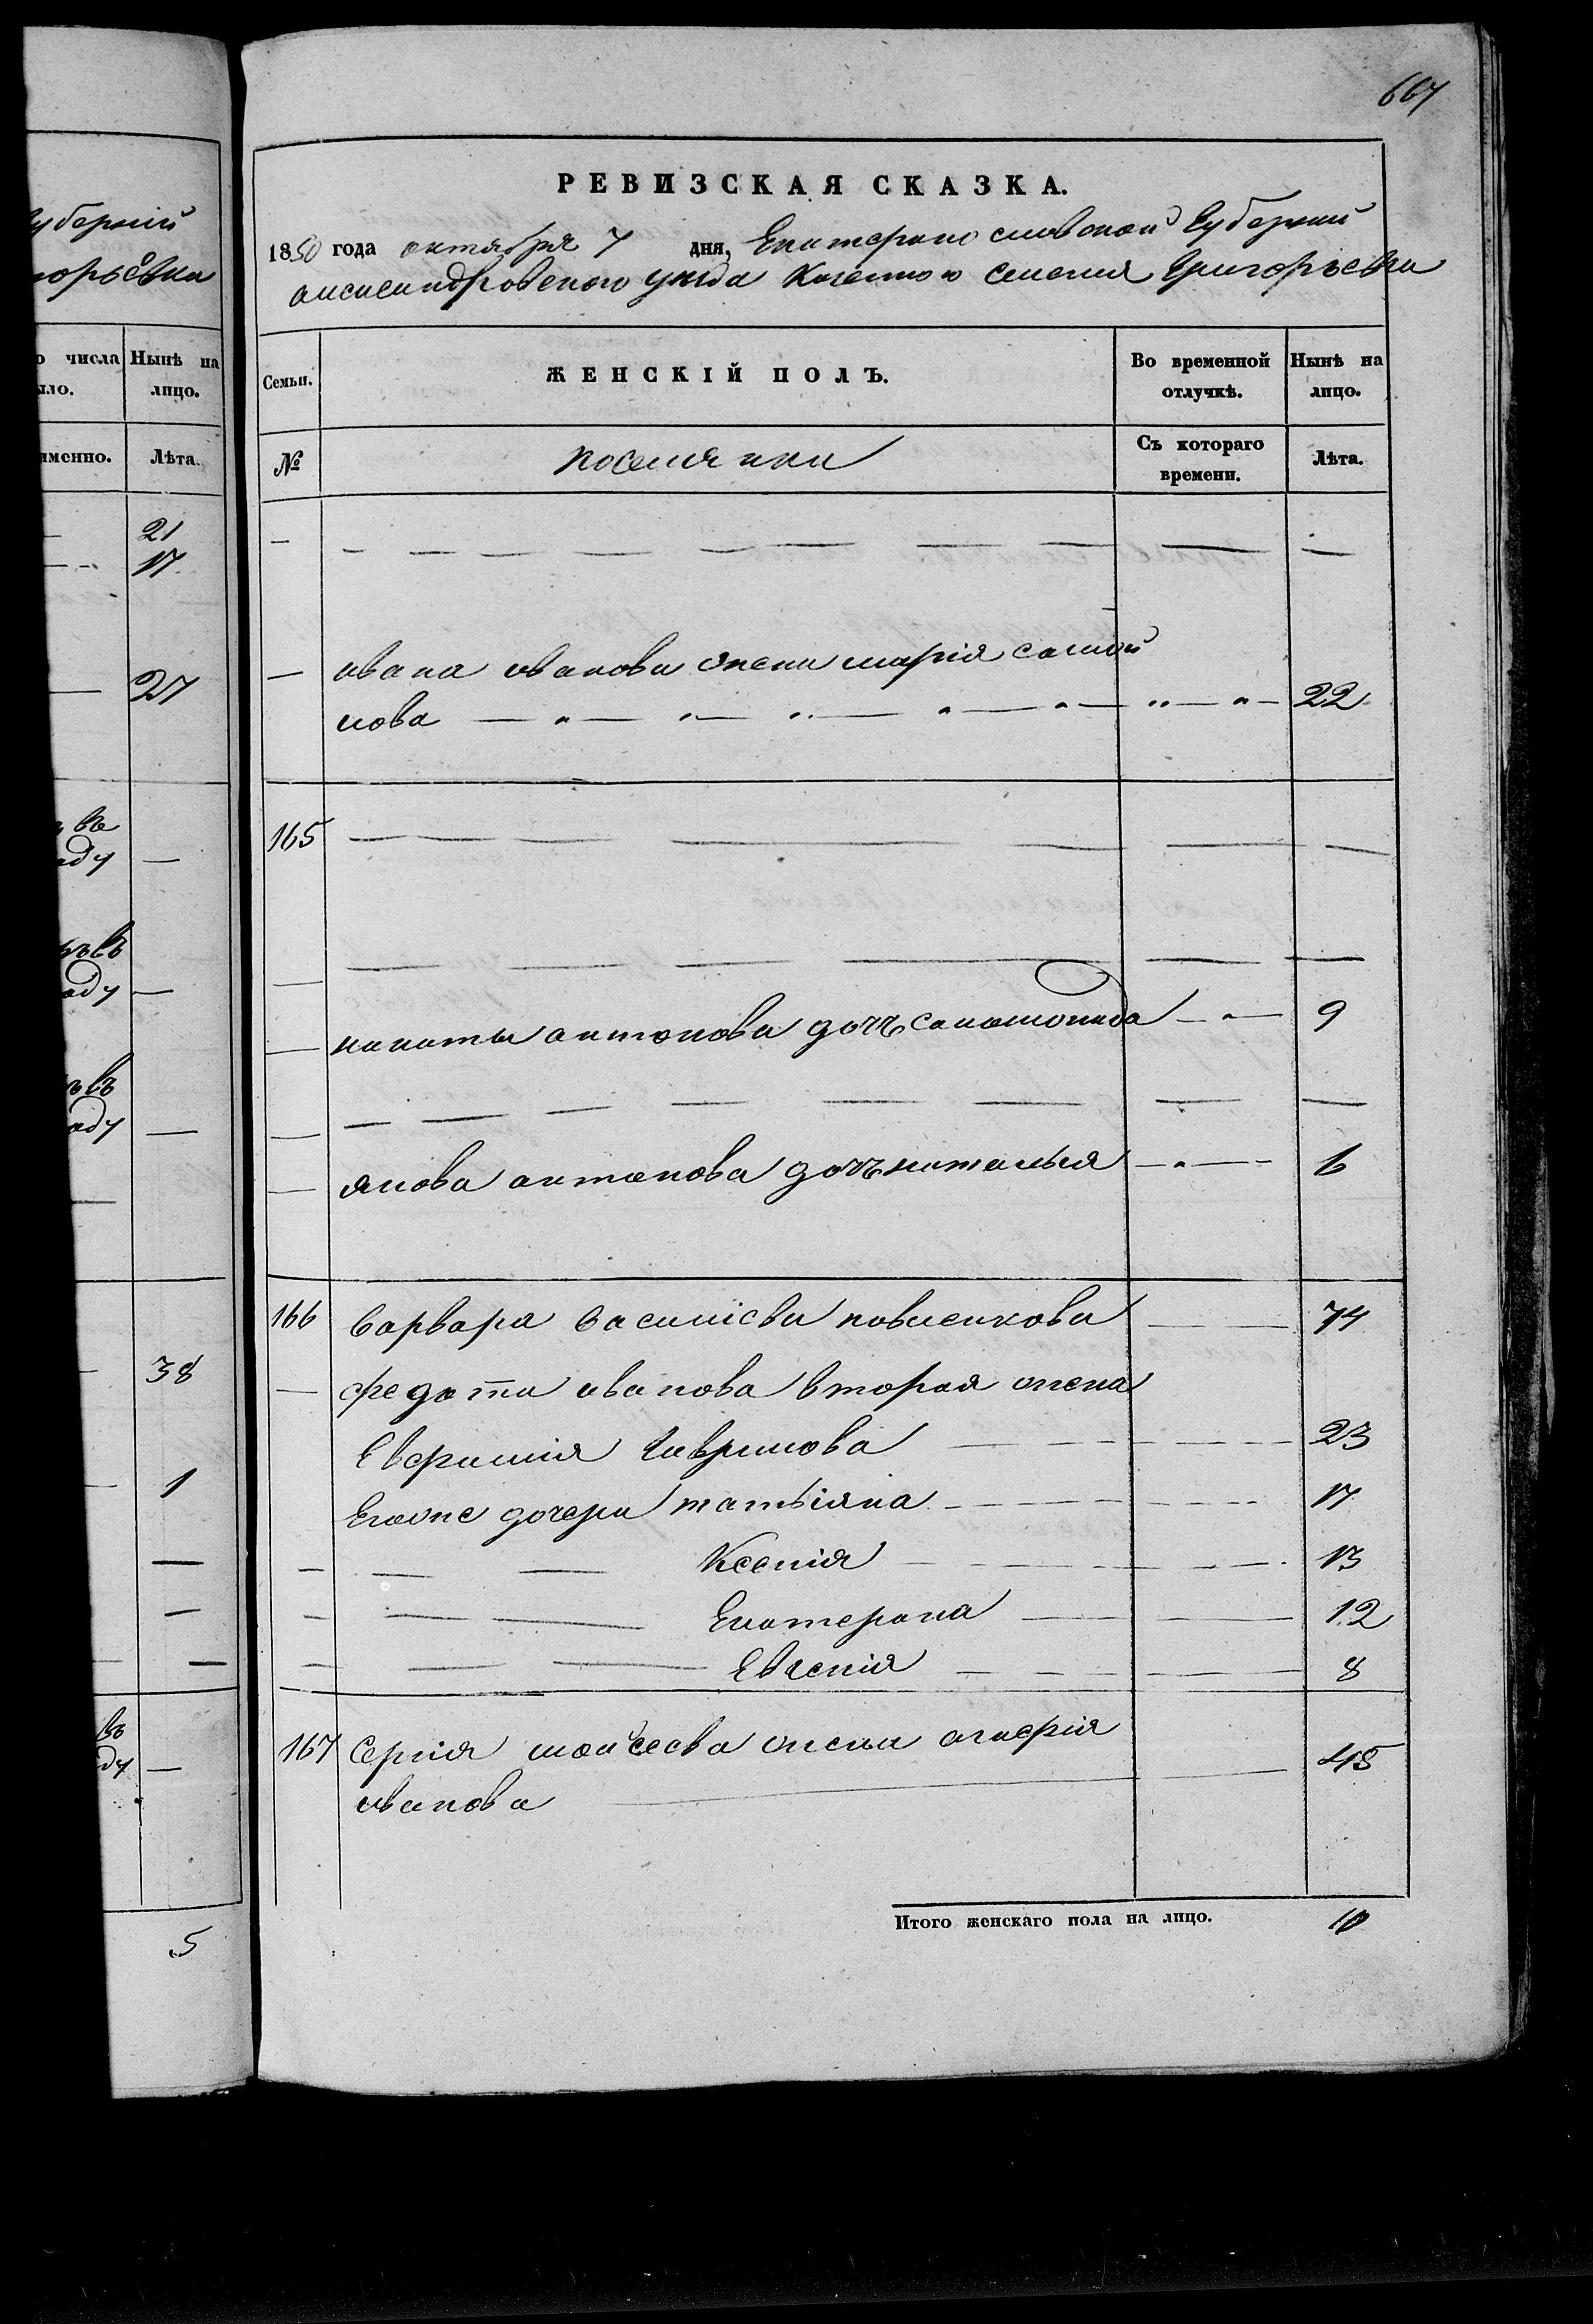 667
РЕВИЗСКАЯ СКАЗКА.
1850 года октября 7 дня, Екатеринославской Губернии
александровского уезда Казенного селения Григорьевки
Семьи.
ЖЕНСКІЙ ПОЛЪ.
Во временной отлучкѣ.
Нынѣ на лицо.
№
поселянки
Съ котораго времени.
Лѣта.
ивана иванова жена марія самой
лова 22
165
никиты антонова дочь саломонида 9
якова антонова дочь наталья 6
166 Варвара василіева павленкова 74
федота иванова вторая жена
Евфимия Гаврилова 23
Еговне дочери татьіяна 17
Ксенія 13
Екатерина 12
Евгенія 8
167 Сергія моисеева жена
иванова 45
Итого женскаго пола на лицо. 10
губерніи
горьевка
числа
ыло.
Нынѣ на лицо.
именно.
Лѣта.
21
17
27
въ
аду
въ
аду
въ
аду
38
1
въ
ду
5